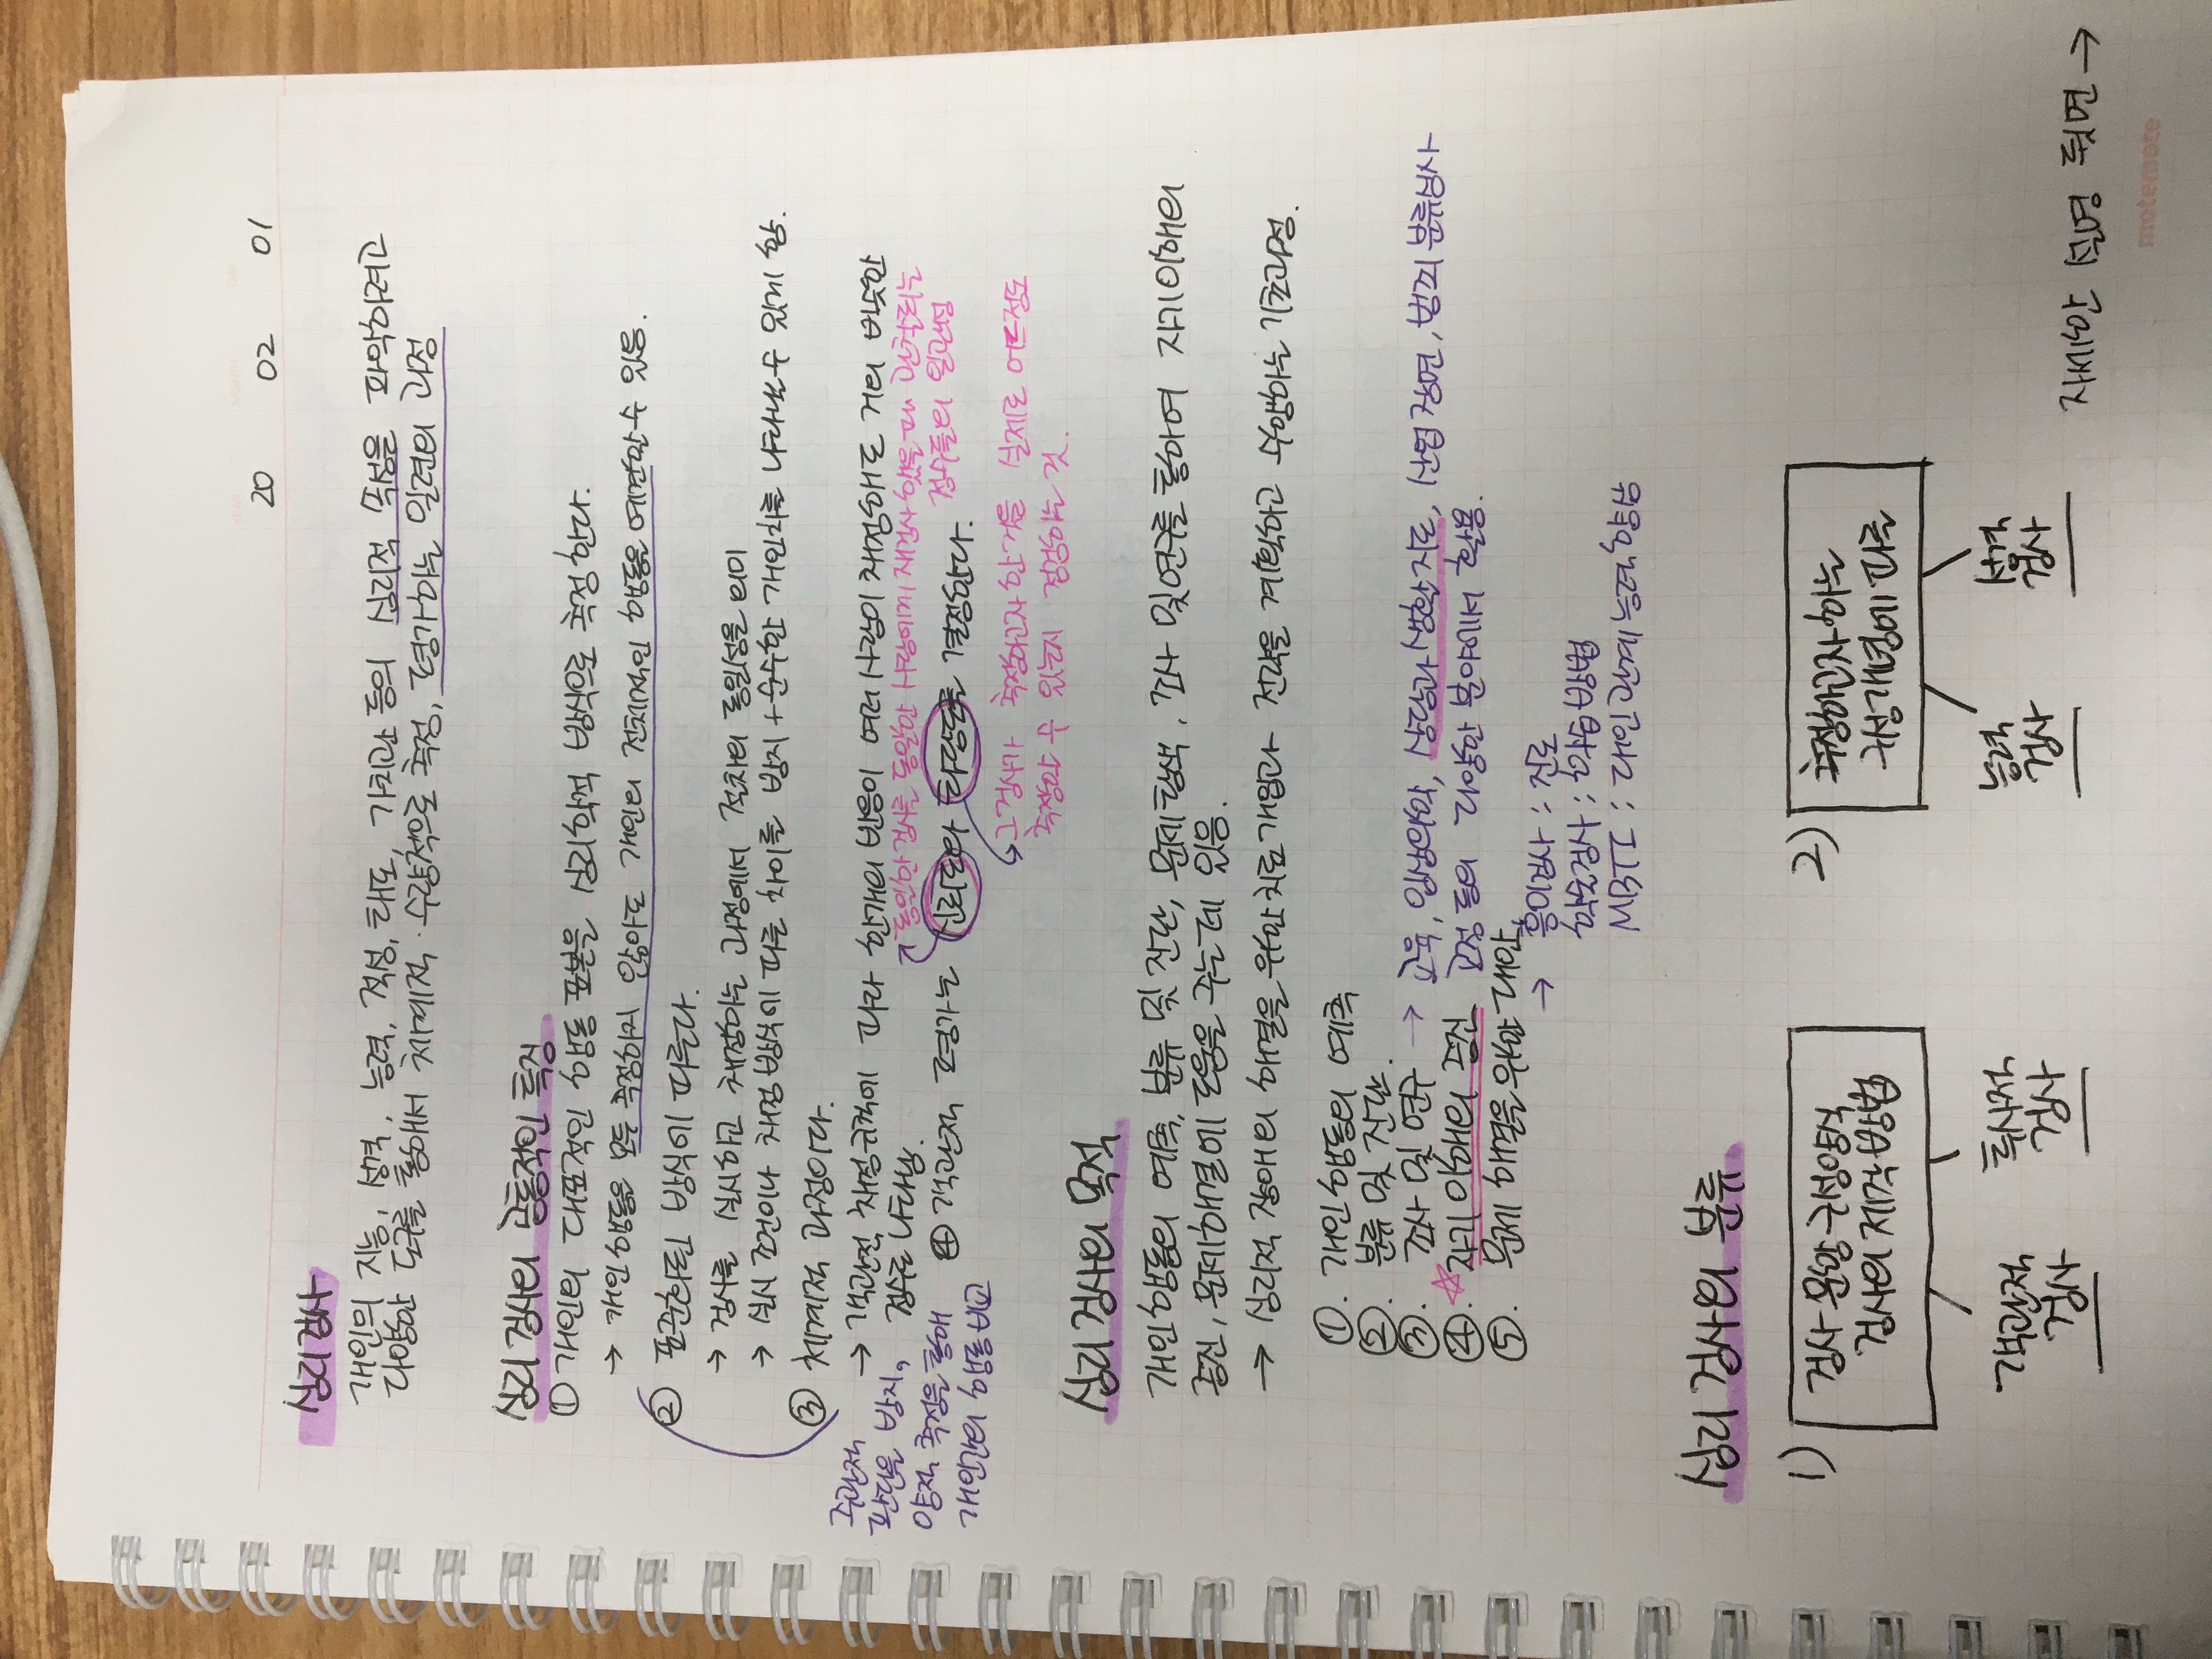 20 02 01
심리검사
개인의 지능, 성격, 능력, 적성, 태도, 가치관 등의 심리적 속성을 파악하려고
다양한 도구를 통해서 체계적·수량적으로 측정, 평가하는 일련의 과정
심리검사의 공통적인 특징
① 개인의 대표적인 행동 표본을 심리학적 방식으로 측정한다.
→ 개인행동을 모두 측정하지 않아도 개인의 전체적인 행동을 예견할 수 있음.
② 표준화된 방식에 따른다.
→ 검사를 실시하고 채점하는 과정에서 절차의 동일성을 의미
→ 실시 조건이나 채점 방식에 따른 차이를 방지 + 순수한 개인차를 나타낼 수 있게 함.
③ 체계적 과정이다.
→ 객관적 채점규칙에 따라 한개의 반응이 여러 사람이 채점해도 거의 비슷한
점수로 나타남.
주관적
판단을 방지,
양적 측정을 통해
개인간의 행동 비교
동일한 검사를 동일한 사람에게 재검사 했을 때 관찰되는
점수들의 일관성
④ 객관적 평가는 신뢰도와 타당도를 결정한다.
그 검사가 측정하고자 한 것을 실제로 어느정도
측정할 수 있는지 점검하는 것.
심리 검사의 목적
개인행동의 예측, 분류 및 진단, 문제탐색, 조사 및 연구를 통하여 자기이해의
증진, 문제해결에 도움을 주는데 있음.
→ 심리적 장애의 해결을 위한 치료개입과 전략을 계획하고 수행하는 기초과정.
①. 개인행동의 예측
②. 분류 및 진단.
③. 조사 및 연구 → 교육, 임상의학, 상담과 생활지도, 산업장면, 범죄 분류심사
④. ☆자기 이해의 증진 교정 등의 다양한 분야에서 활용.
⑤. 문제 해결을 위한 대안.
→ 흥미검사 : 진로
학습검사 : 학습방법
MBTI : 대인관계능력향상
심리 검사의 분류
1) 검사 문항 구성양식
검사의 제작 방법
객관적
검사
투사적
검사
2) 측정하고자 하는
구성개념에 따른
능력
검사
성격
검사
자세한 설명 뒷면 →
motemote